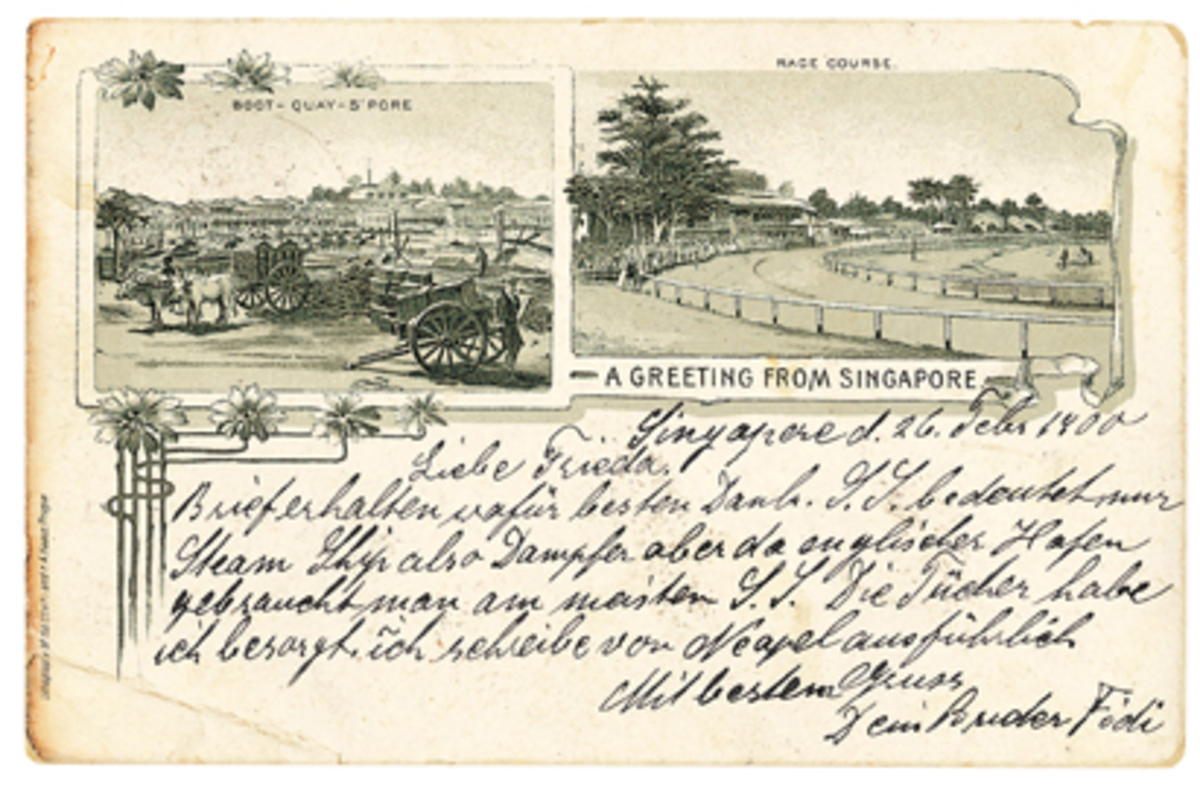 BOOT-QUAY-S'PORE
RACE COURSE.
A GREETING FROM SINGAPORE
Singapore d. 26. Febr 1900
Liebe Frieda.
Brief erhalten dafür besten Dank. S.S. bedeutet nur
Steam Ship also Dampfer aber da englischer Hafen
gebraucht man am meisten S.S. Die Tücher habe
ich besorgt. ich schreibe von Neapel ausführlich
Mit bestem Gruss
Dein Bruder Födi